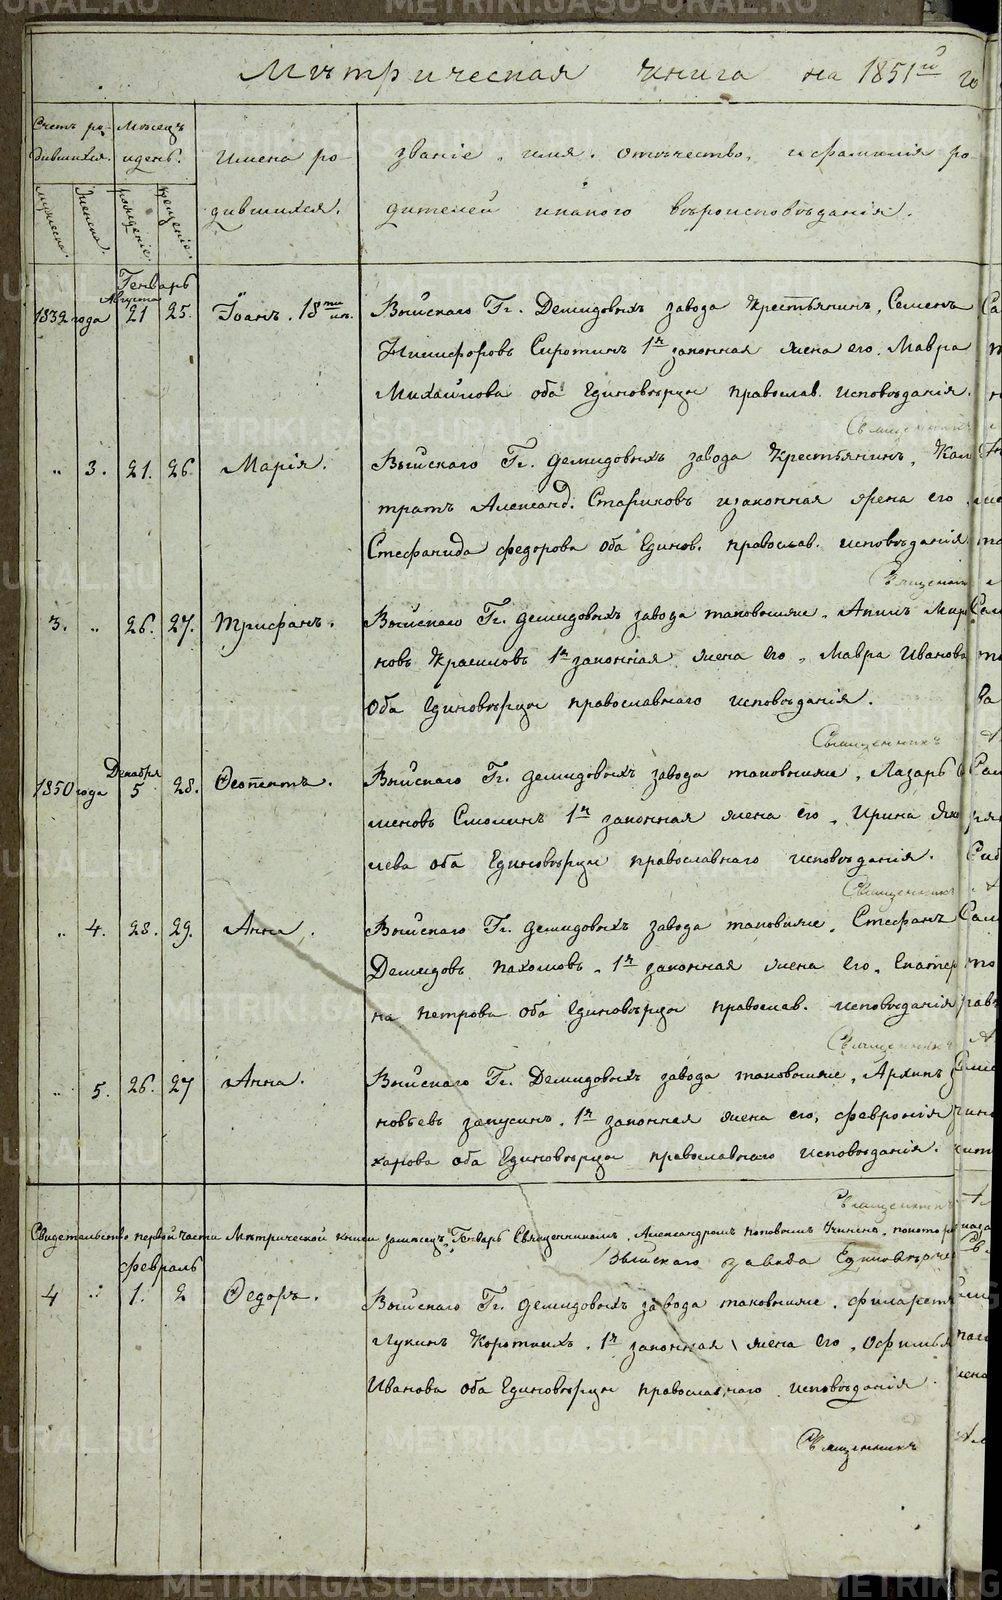 Мѣтрическая книга на 1851й го
Счетъ ро-
дившихся.
Мѣсецъ
и день.
Имена ро-
дившихся.
Званіе, имя, отъчество, и фамилія ро-
дителей и какого вѣроисповѣданія.
мужеска.
женска.
рожденіе.
крещеніе.
Генварь
1832 года Августа 21 25. Іоанъ. 18ти
Выйскаго Гг. Демидовыхъ завода Крестьянинъ, Семенъ
Никифоровъ Сиротинъ 1я законная жена его. Мавра
Михайлова оба Единовѣрцы православ. исповѣданія.
Священникъ
" 3. 21. 26. Марія.
Выйскаго Гг. Демидовыхъ завода Крестьянинъ, Кал
тратъ Александ. Стариковъ изаконная жена его
Стефанида федорова оба Единов. православ. исповѣданія
Священник
3. " 26. 27. Трифанъ.
Выйскаго Гг. Демидовыхъ завода таковыяже,
новъ Красиловъ 1я законная жена его, Мавра Иванова
Оба Единовѣрцы православнаго исповѣданія.
Священникъ
1850 года Декабря 5 28. Ѳеопентъ.
Выйскаго Гг. Демидовыхъ завода таковыяже, Лазарь
меновъ Смолинъ 1я законная жена его, Ирина Яко
лева оба Единовѣрцы православнаго исповѣданія.
Священникъ
" 4. 28. 29. Анна.
Выйскаго Гг. Демидовыхъ завода таковыяже, Стефанъ
Демидовъ Пахомовъ, 1я законная жена его, Екатер
на петрова оба Единовѣрцы православ. исповѣданія
Священникъ
" 5. 26. 27 Анна.
Выйскаго Гг. Демидовыхъ завода таковыяже, Архипъ
новьевъ запусинъ, 1я законная жена его, феврония
харова оба Единовѣрцы православнаго исповѣданія.
Священникъ
Свидетельство первой части Метрической книги замесецъ Генварь Священникомъ, Александромъ поповымъ
Выйскаго завода Единовѣрче
февраль
4 " 1. 2 Ѳедоръ.
Выйскаго Гг. Демидовыхъ завода таковыяже, филаретъ
Лукинъ Короткихъ, 1я законная жена его, Офимья
Иванова оба Единовѣрцы православнаго исповѣданія.
Священникъ
METRIKI.GASO-URAL.RU